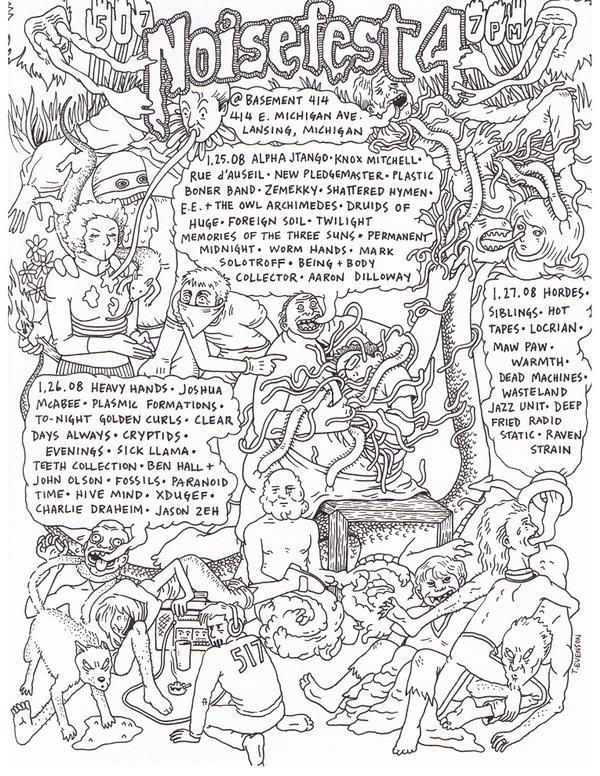 517
Noisefest 4
7PM
@ BASEMENT 414
414 E. MICHIGAN AVE.
LANSING, MICHIGAN
1.25.08 ALPHA JTANGO • KNOX MITCHELL •
RUE d'AUSEIL • NEW PLEDGEMASTER • PLASTIC
BONER BAND • ZEMEKKY • SHATTERED HYMEN •
E.E. + THE OWL ARCHIMEDES • DRUIDS OF
HUGE • FOREIGN SOIL • TWILIGHT
MEMORIES OF THE THREE SUNS • PERMANENT
MIDNIGHT • WORM HANDS • MARK
SOLOTROFF • BEING + BODY
COLLECTOR • AARON DILLOWAY
1.26.08 HEAVY HANDS • JOSHUA
McABEE • PLASMIC FORMATIONS •
TO-NIGHT GOLDEN CURLS • CLEAR
DAYS ALWAYS • CRYPTIDS •
EVENINGS • SICK LLAMA •
TEETH COLLECTION • BEN HALL +
JOHN OLSON • FOSSILS • PARANOID
TIME • HIVE MIND • XDUGEF •
CHARLIE DRAHEIM • JASON ZEH
1.27.08 HORDES •
SIBLINGS • HOT
TAPES • LOCRIAN •
MAW PAW •
WARMTH •
DEAD MACHINES •
WASTELAND
JAZZ UNIT • DEEP
FRIED RADIO
STATIC • RAVEN
STRAIN
517
T. EVENSON